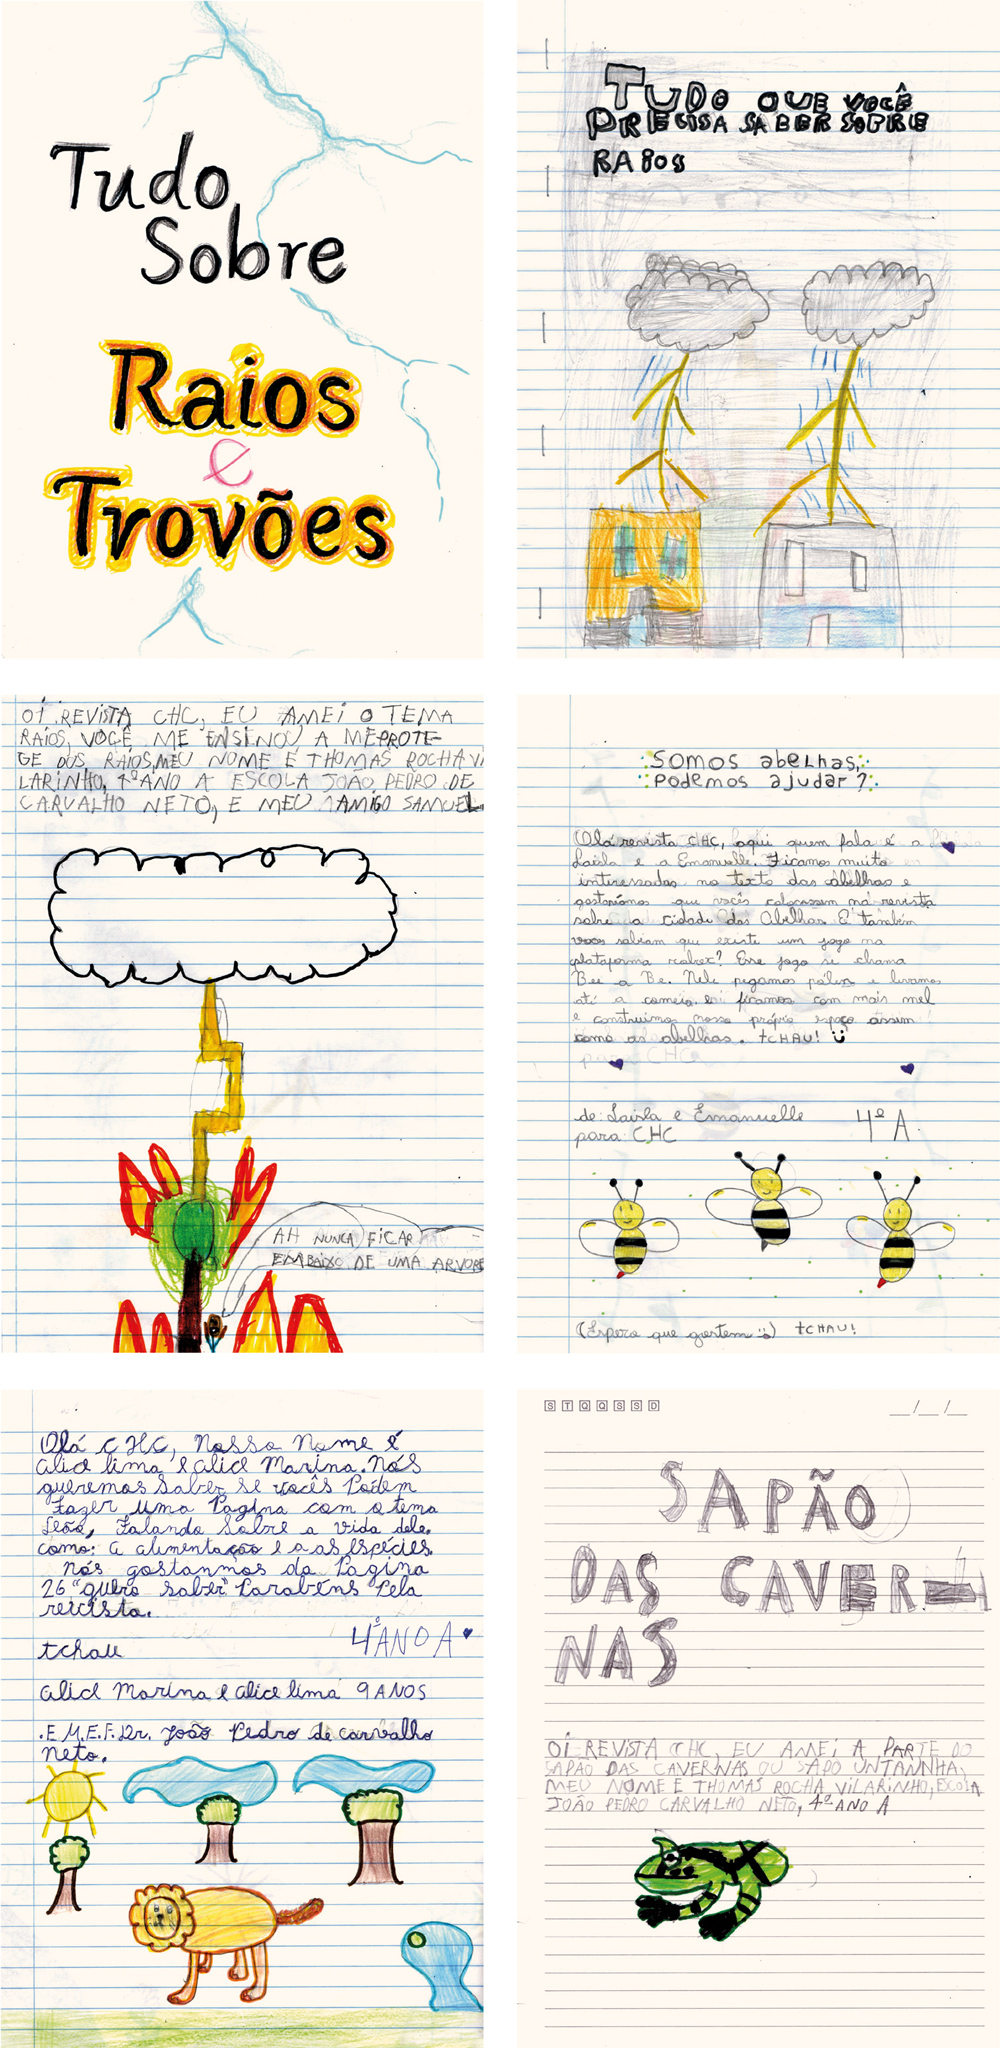 Tudo
Sobre
Raios
e
Trovões
TUDO QUE VOCÊ
PRECISA SABER SOBRE
RAIOS
OI REVISTA CHC, EU AMEI O TEMA
RAIOS, VOCÊ ME ENSINOU A ME PROTE-
GE DOS RAIOS, MEU NOME É THOMAS ROCHA VI
LARINHO, 4º ANO A ESCOLA JOÃO PEDRO DE
CARVALHO NETO, E MEU AMIGO SAMUEL
AH NUNCA FICAR
EMBAIXO DE UMA ARVORE
Somos abelhas,
podemos ajudar?
Olá revista CHC, aqui quem fala é a
Laisla e a Emanuelle. Ficamos muito
intiressadas no texto das abelhas e
gostariamos que vocês colocassem na revista
sobre a cidade das Abelhas. E também
voces sabiam que existe um jogo na
plataforma roblox? Esse jogo se chama
Bee a Be. Nele pegamos pólen e levamos
até a comeia. ficamos com mais mel
e construimos nosso próprio espaço assim
como as abelhas. tCHAU!
para CHC
de: Laisla e Emanuelle
para: CHC
4º A
(Espero que gostem) tCHAU!
Olá CHC, Nosso Nome é
alice lima e alice Marina. Nós
queremos saber se vocês Podem
Fazer uma Pagina com o tema
leão, Falando Sobre a vida dele.
como: a alimentação e a as espécies.
Nós gostanmos da Pagina
26 "quero saber" Parabéns Pela
revista.
tchau
4º ANO A
alice Marina e alice lima 9 ANOS
.E.M.E.F. Dr. João Pedro de carvalho
neto.
S T Q Q S S D
__/__/__
SAPÃO
DAS CAVER-
NAS
OI REVISTA CHC, EU AMEI A PARTE DO
SAPÃO DAS CAVERNAS OU SAPO UNTANNHA,
MEU NOME É THOMAS ROCHA VILARINHO, ESCOLA
JOÃO PEDRO CARVALHO NETO, 4º ANO A